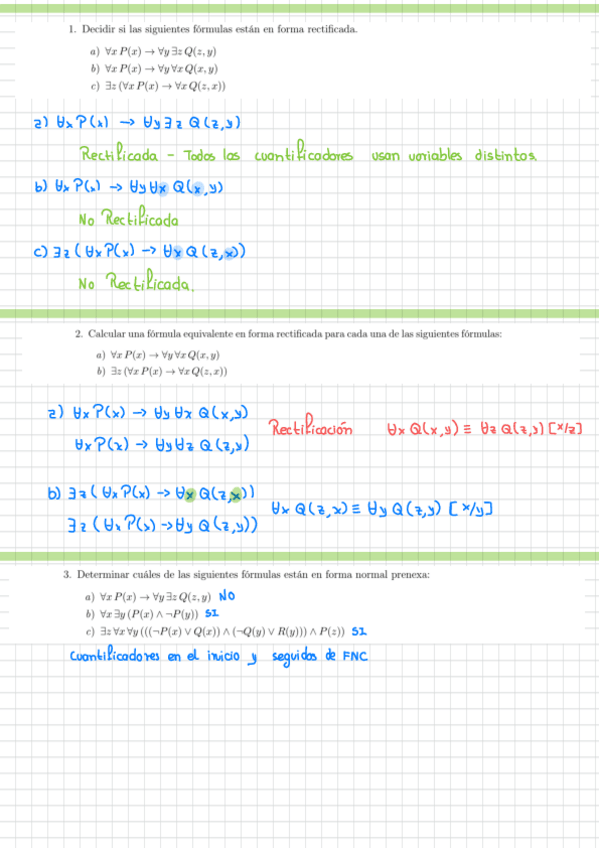 1. Decidir si las siguientes fórmulas están en forma rectificada.
a) ∀x P(x) → ∀y ∃z Q(z, y)
b) ∀x P(x) → ∀y ∀x Q(x, y)
c) ∃z (∀x P(x) → ∀x Q(z, x))
a) ∀x P(x) → ∀y ∃z Q(z,y)
Rectificada - Todos las cuantificadores usan variables distintos.
b) ∀x P(x) → ∀y ∀x Q(x,y)
No Rectificada
c) ∃z (∀x P(x) → ∀x Q(z,x))
No Rectificada.
2. Calcular una fórmula equivalente en forma rectificada para cada una de las siguientes fórmulas:
a) ∀x P(x) → ∀y ∀x Q(x, y)
b) ∃z (∀x P(x) → ∀x Q(z, x))
a) ∀x P(x) → ∀y ∀x Q(x,y)
Rectificación ∀x Q(x,y) ≡ ∀z Q(z,y) [x/z]
∀x P(x) → ∀y ∀z Q(z,y)
b) ∃z (∀x P(x) → ∀x Q(z,x))
∀x Q(z,x) ≡ ∀y Q(z,y) [x/y]
∃z (∀x P(x) → ∀y Q(z,y))
3. Determinar cuáles de las siguientes fórmulas están en forma normal prenexa:
a) ∀x P(x) → ∀y ∃z Q(z, y) NO
b) ∀x ∃y (P(x) ∧ ¬P(y)) SI
c) ∃z ∀x ∀y (((¬P(x) ∨ Q(x)) ∧ (¬Q(y) ∨ R(y))) ∧ P(z)) SI
Cuantificadores en el inicio y seguidos de FNC